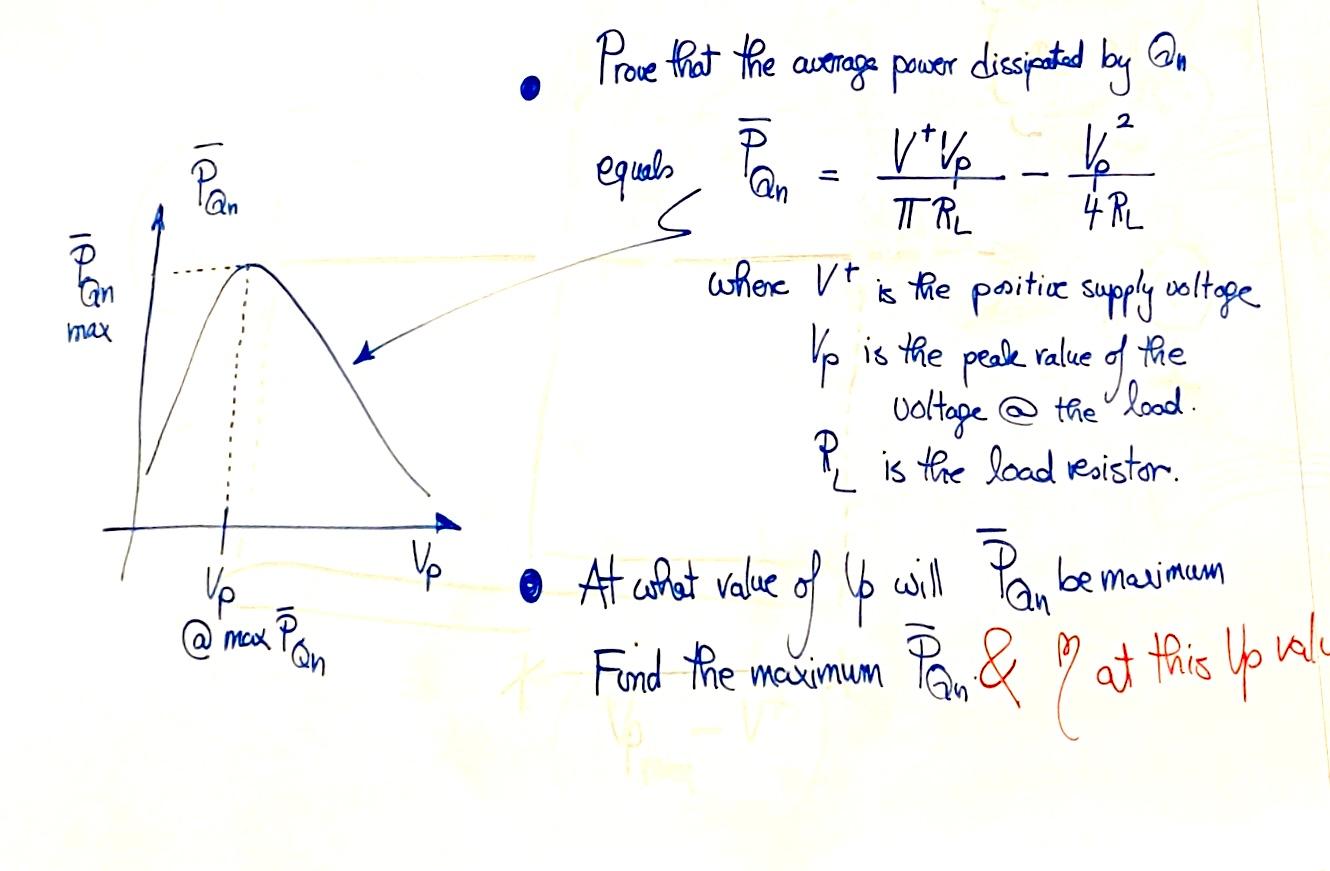 Prove that the average power dissipated by Qn
equals P̄Qn = V⁺Vp / πRL − Vp² / 4RL
where V⁺ is the positive supply voltage
Vp is the peak value of the
voltage @ the load.
RL is the load resistor.
P̄Qn
P̄Qn
max
Vp
Vp
@ max P̄Qn
At what value of Vp will P̄Qn be maximum
Find the maximum P̄Qn. & η at this Vp